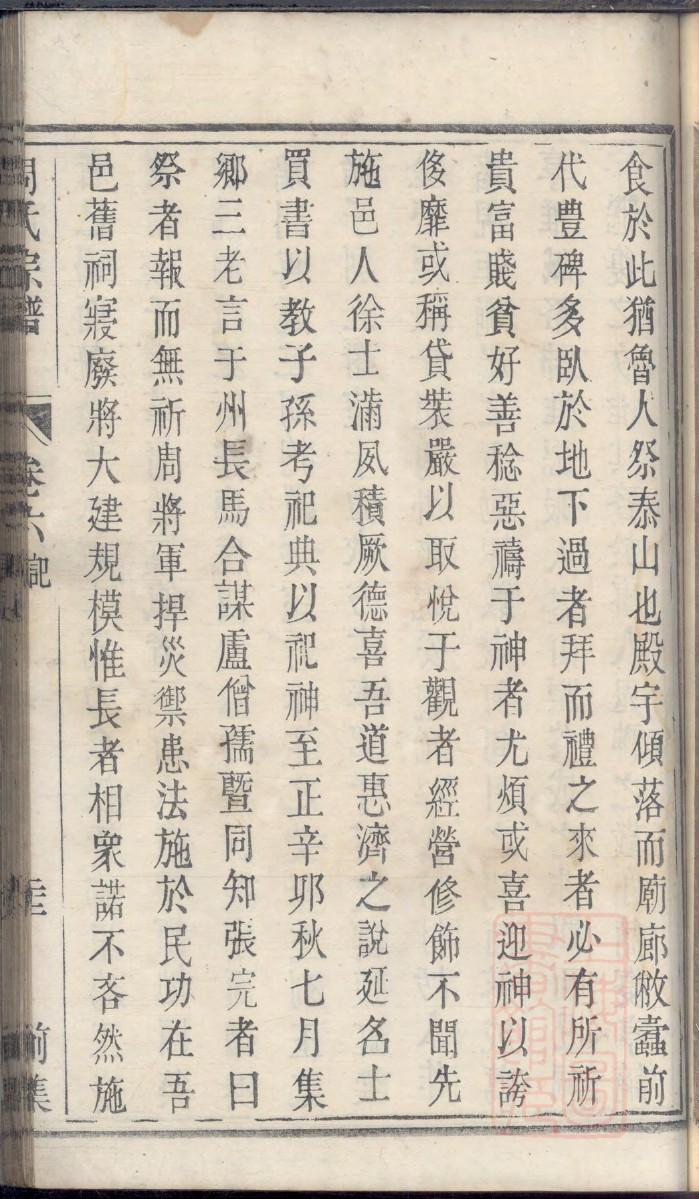 食於此猶魯人祭泰山也殿宇傾落而廟廊敝蠹前
代豊碑多臥於地下過者拜而禮之來者必有所祈
貴富賤貧好善稔惡禱于神者尤煩或喜迎神以誇
侈靡或稱貸裝嚴以取悅于觀者經營修飾不聞先
施邑人徐士滿夙積厥德喜吾道惠濟之說延名士
買書以教子孫考祀典以祀神至正辛夘秋七月集
鄉三老言于州長馬合謀盧僧孺暨同知張完者曰
祭者報而無祈周將軍捍災禦患法施於民功在吾
邑舊祠寢廢將大建規模惟長者相衆諾不吝然施
周氏宗譜 卷六 記 前集